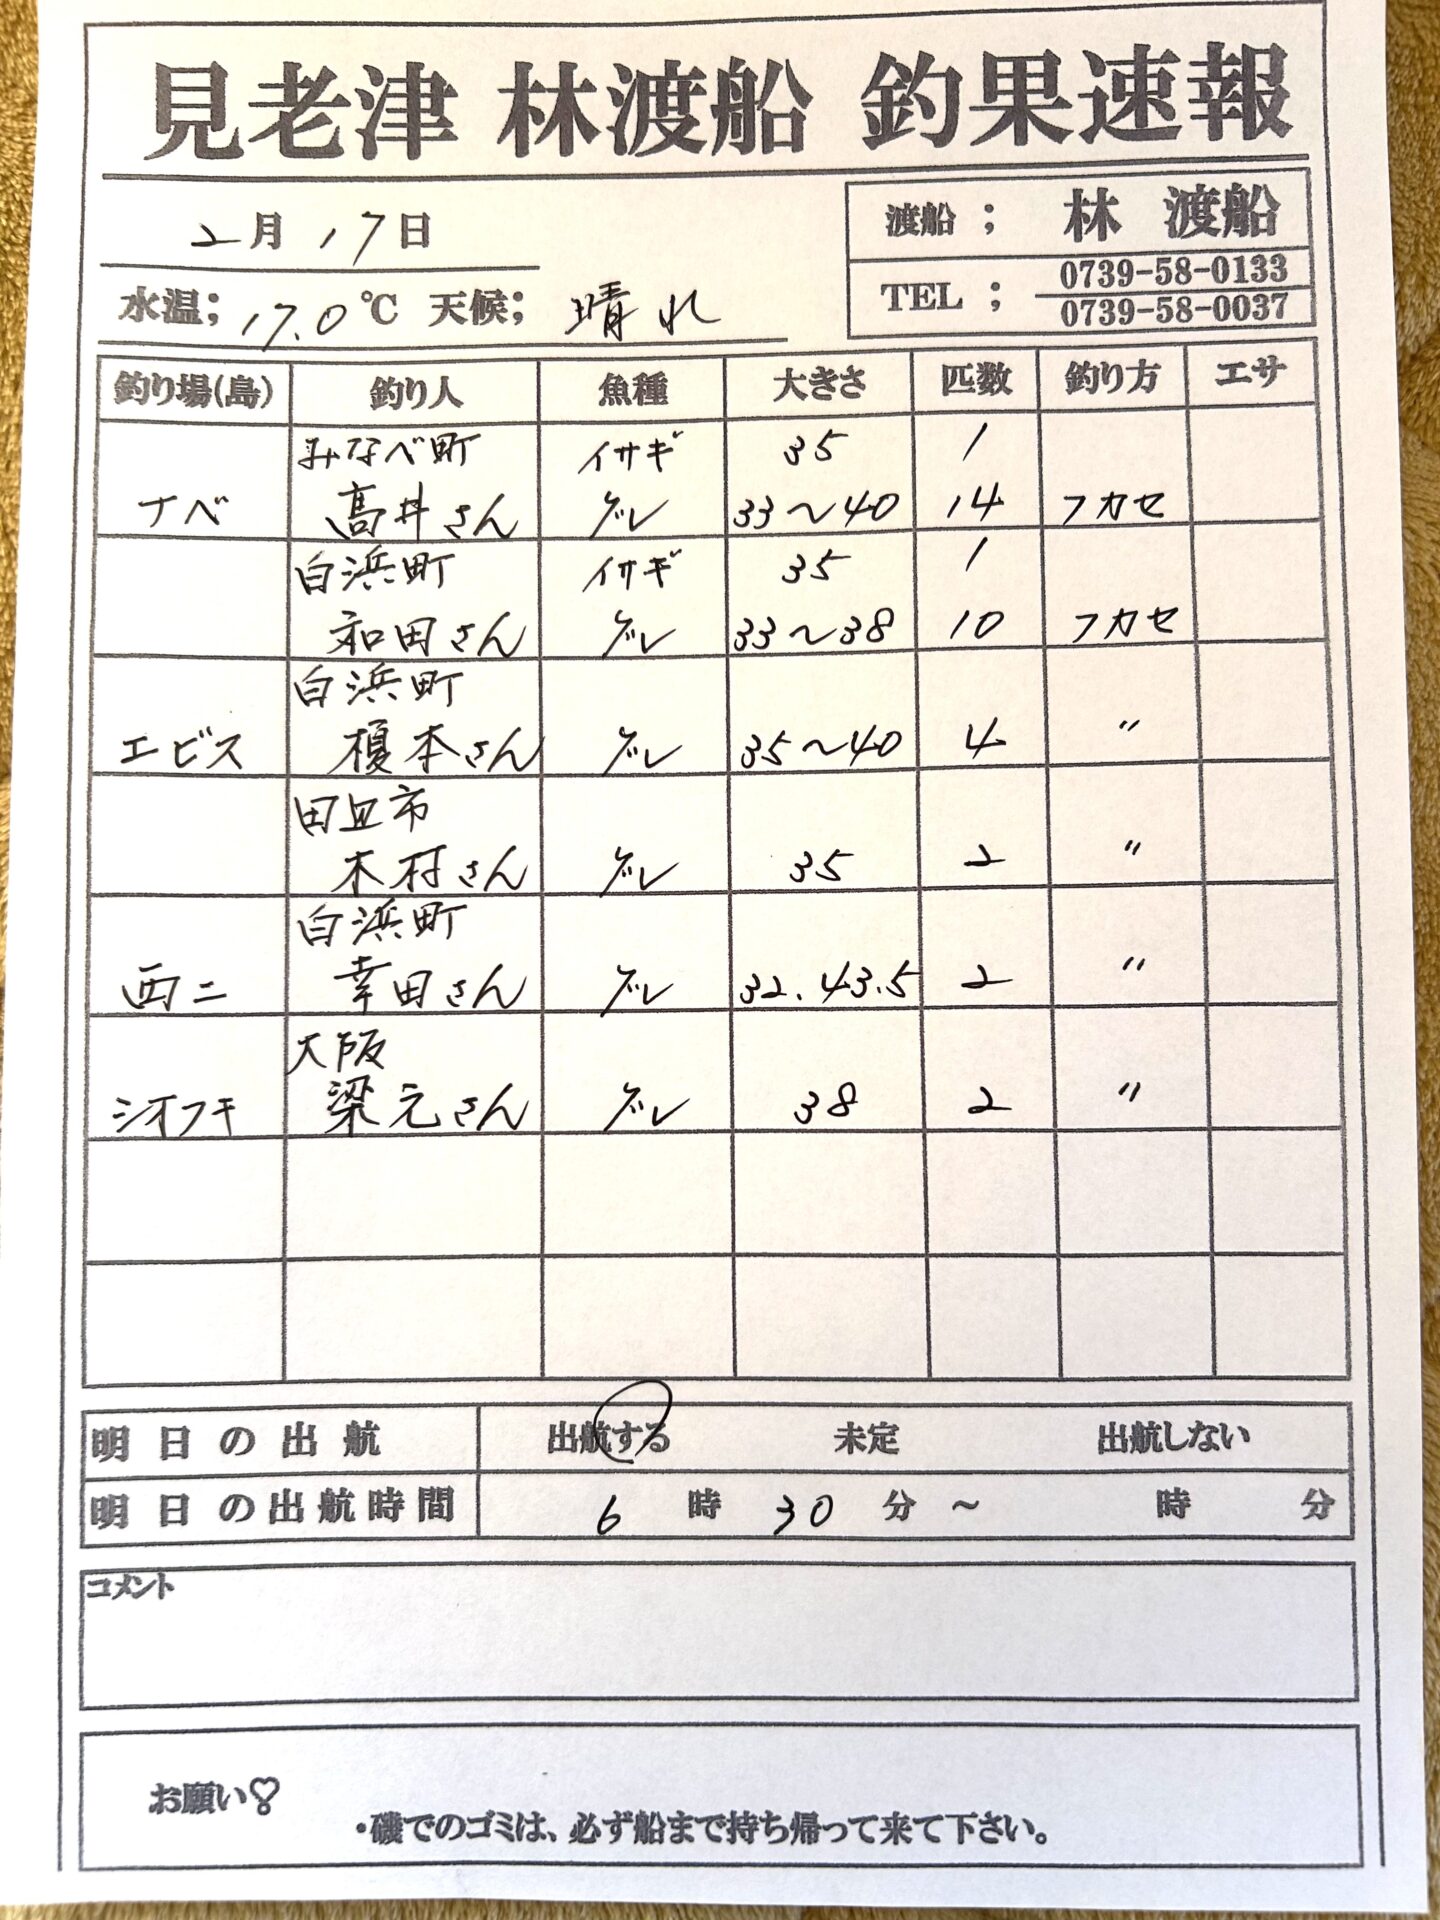 見老津 林渡船 釣果速報
2月17日
渡船 ; 林 渡船
TEL ; 0739-58-0133
0739-58-0037
水温; 17.0℃ 天候; 晴れ
釣り場(島) 釣り人 魚種 大きさ 匹数 釣り方 エサ
みなべ町 イサギ 35 1
ナベ 高井さん グレ 33〜40 14 フカセ
白浜町 イサギ 35 1
和田さん グレ 33〜38 10 フカセ
白浜町
エビス 榎本さん グレ 35〜40 4 〃
田辺市
木村さん グレ 35 2 〃
白浜町
西ニ 幸田さん グレ 32.43.5 2 〃
大阪
シオフキ 梁元さん グレ 38 2 〃
明日の出航 出航する 未定 出航しない
明日の出航時間 6時30分〜 時 分
コメント
お願い♡
・磯でのゴミは、必ず船まで持ち帰って来て下さい。